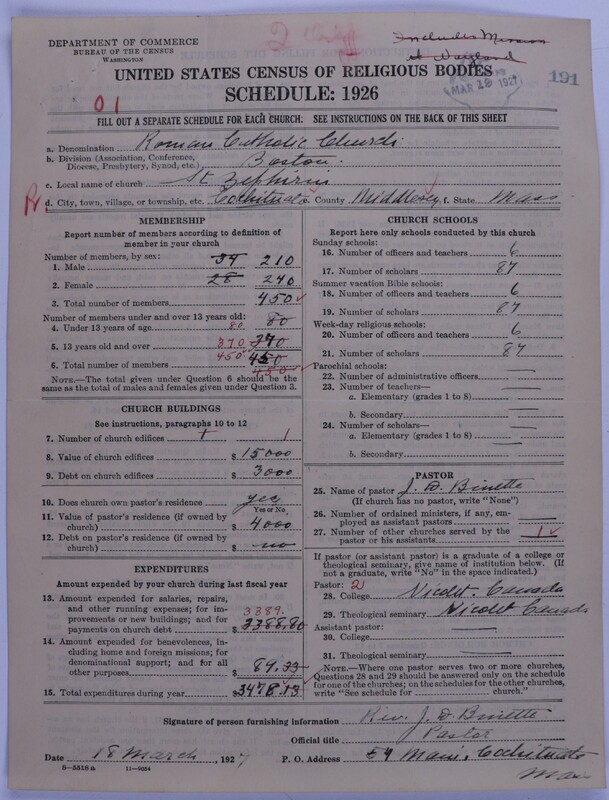 DEPARTMENT OF COMMERCE
BUREAU OF THE CENSUS
WASHINGTON
Includes Mission
MAR 19 1927
191
UNITED STATES CENSUS OF RELIGIOUS BODIES
SCHEDULE: 1926
01
FILL OUT A SEPARATE SCHEDULE FOR EACH CHURCH. SEE INSTRUCTIONS ON THE BACK OF THIS SHEET
a. Denomination Roman Catholic Church
b. Division (Association, Conference, Diocese, Presbytery, Synod, etc.) Boston.
c. Local name of church St Zephirin
d. City, town, village, or township, etc. Cochituate e. County Middlesex f. State Mass
MEMBERSHIP
Report number of members according to definition of member in your church
Number of members, by sex:
1. Male 34 210
2. Female 28 240
3. Total number of members 450
Number of members under and over 13 years old:
4. Under 13 years of age 80 80
5. 13 years old and over 370 370
6. Total number of members 450 450
450
NOTE.—The total given under Question 6 should be the same as the total of males and females given under Question 3.
CHURCH BUILDINGS
See instructions, paragraphs 10 to 12
7. Number of church edifices 1 1
8. Value of church edifices $ 15000
9. Debt on church edifices $ 3000
10. Does church own pastor's residence yes
Yes or No.
11. Value of pastor's residence (if owned by church) $ 4000
12. Debt on pastor's residence (if owned by church) $ no
EXPENDITURES
Amount expended by your church during last fiscal year
13. Amount expended for salaries, repairs, and other running expenses; for improvements or new buildings; and for payments on church debt 3389. $ 3388.80
14. Amount expended for benevolences, including home and foreign missions; for denominational support; and for all other purposes $ 89.33
15. Total expenditures during year $ 3478.13
CHURCH SCHOOLS
Report here only schools conducted by this church
Sunday schools:
16. Number of officers and teachers 6
17. Number of scholars 87
Summer vacation Bible schools:
18. Number of officers and teachers 6
19. Number of scholars 87
Week-day religious schools:
20. Number of officers and teachers 6
21. Number of scholars 87
Parochial schools:
22. Number of administrative officers
23. Number of teachers—
a. Elementary (grades 1 to 8)
b. Secondary
24. Number of scholars—
a. Elementary (grades 1 to 8)
b. Secondary
PASTOR
25. Name of pastor J. D. Binette
(If church has no pastor, write "None")
26. Number of ordained ministers, if any, employed as assistant pastors
27. Number of other churches served by the pastor or his assistants 1
If pastor (or assistant pastor) is a graduate of a college or theological seminary, give name of institution below. (If not a graduate, write "No" in the space indicated.)
Pastor: 2
28. College Nicolet - Canada
29. Theological seminary Nicolet Canada
Assistant pastor:
30. College
31. Theological seminary
NOTE.—Where one pastor serves two or more churches, Questions 28 and 29 should be answered only on the schedule for one of the churches; on the schedules for the other churches, write "See schedule for church."
Signature of person furnishing information Rev. J. D. Binette
Official title Pastor
Date 18 March, 1927 P. O. Address 59 Main, Cochituate
Mass
8—5518 a 11—9054